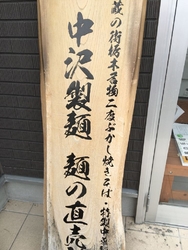 蔵の街栃木名物二度ぶかし焼きそば・特製中華
中沢製麺 麺の直売